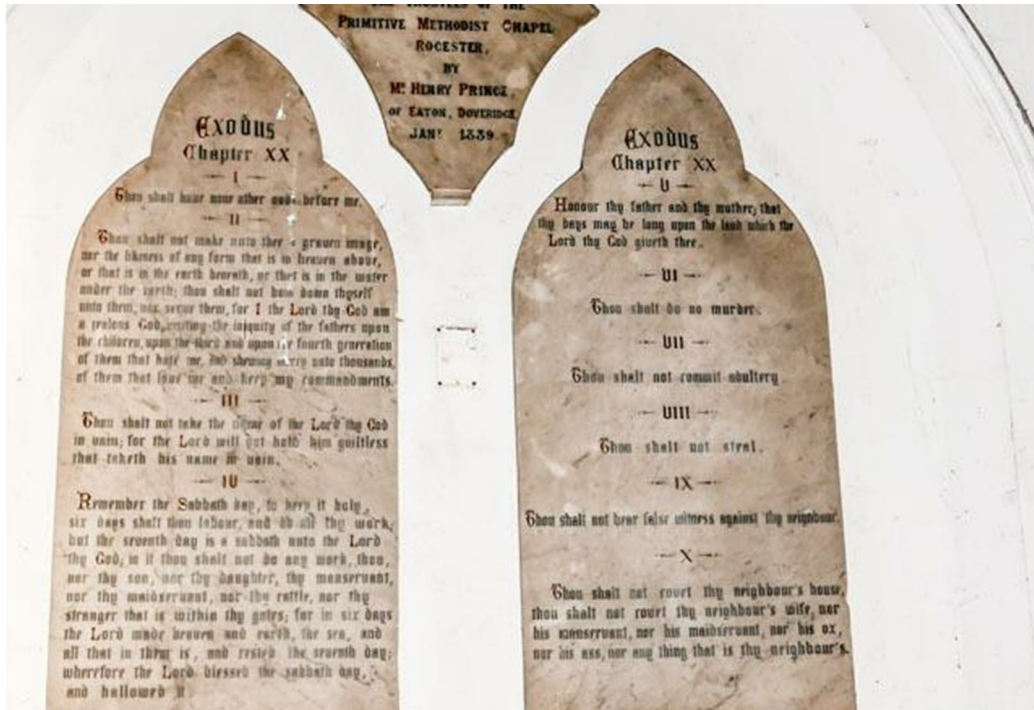 TRUSTEES OF THE
PRIMITIVE METHODIST CHAPEL
ROCESTER,
BY
MR HENRY PRINCE,
OF EATON, DOVERIDGE,
JANY 1889
Exodus
Chapter XX
I
Thou shalt have none other gods before me.
II
Thou shalt not make unto thee a graven image,
nor the likeness of any form that is in heaven above,
or that is in the earth beneath, or that is in the water
under the earth; thou shalt not bow down thyself
unto them, nor serve them, for I the Lord thy God am
a jealous God, visiting the iniquity of the fathers upon
the children, upon the third and upon the fourth generation
of them that hate me, and shewing mercy unto thousands,
of them that love me and keep my commandments.
III
Thou shalt not take the name of the Lord thy God
in vain; for the Lord will not hold him guiltless
that taketh his name in vain.
IV
Remember the Sabbath day, to keep it holy,
six days shalt thou labour, and do all thy work,
but the seventh day is a sabbath unto the Lord
thy God, in it thou shalt not do any work, thou,
nor thy son, nor thy daughter, thy manservant,
nor thy maidservant, nor thy cattle, nor thy
stranger that is within thy gates; for in six days
the Lord made heaven and earth, the sea, and
all that in them is, and rested the seventh day;
wherefore the Lord blessed the sabbath day,
and hallowed it.
Exodus
Chapter XX
V
Honour thy father and thy mother; that
thy days may be long upon the land which the
Lord thy God giveth thee.
VI
Thou shalt do no murder.
VII
Thou shalt not commit adultery
VIII
Thou shalt not steal.
IX
Thou shalt not bear false witness against thy neighbour.
X
Thou shalt not covet thy neighbour's house,
thou shalt not covet thy neighbour's wife, nor
his manservant, nor his maidservant, nor his ox,
nor his ass, nor any thing that is thy neighbour's.